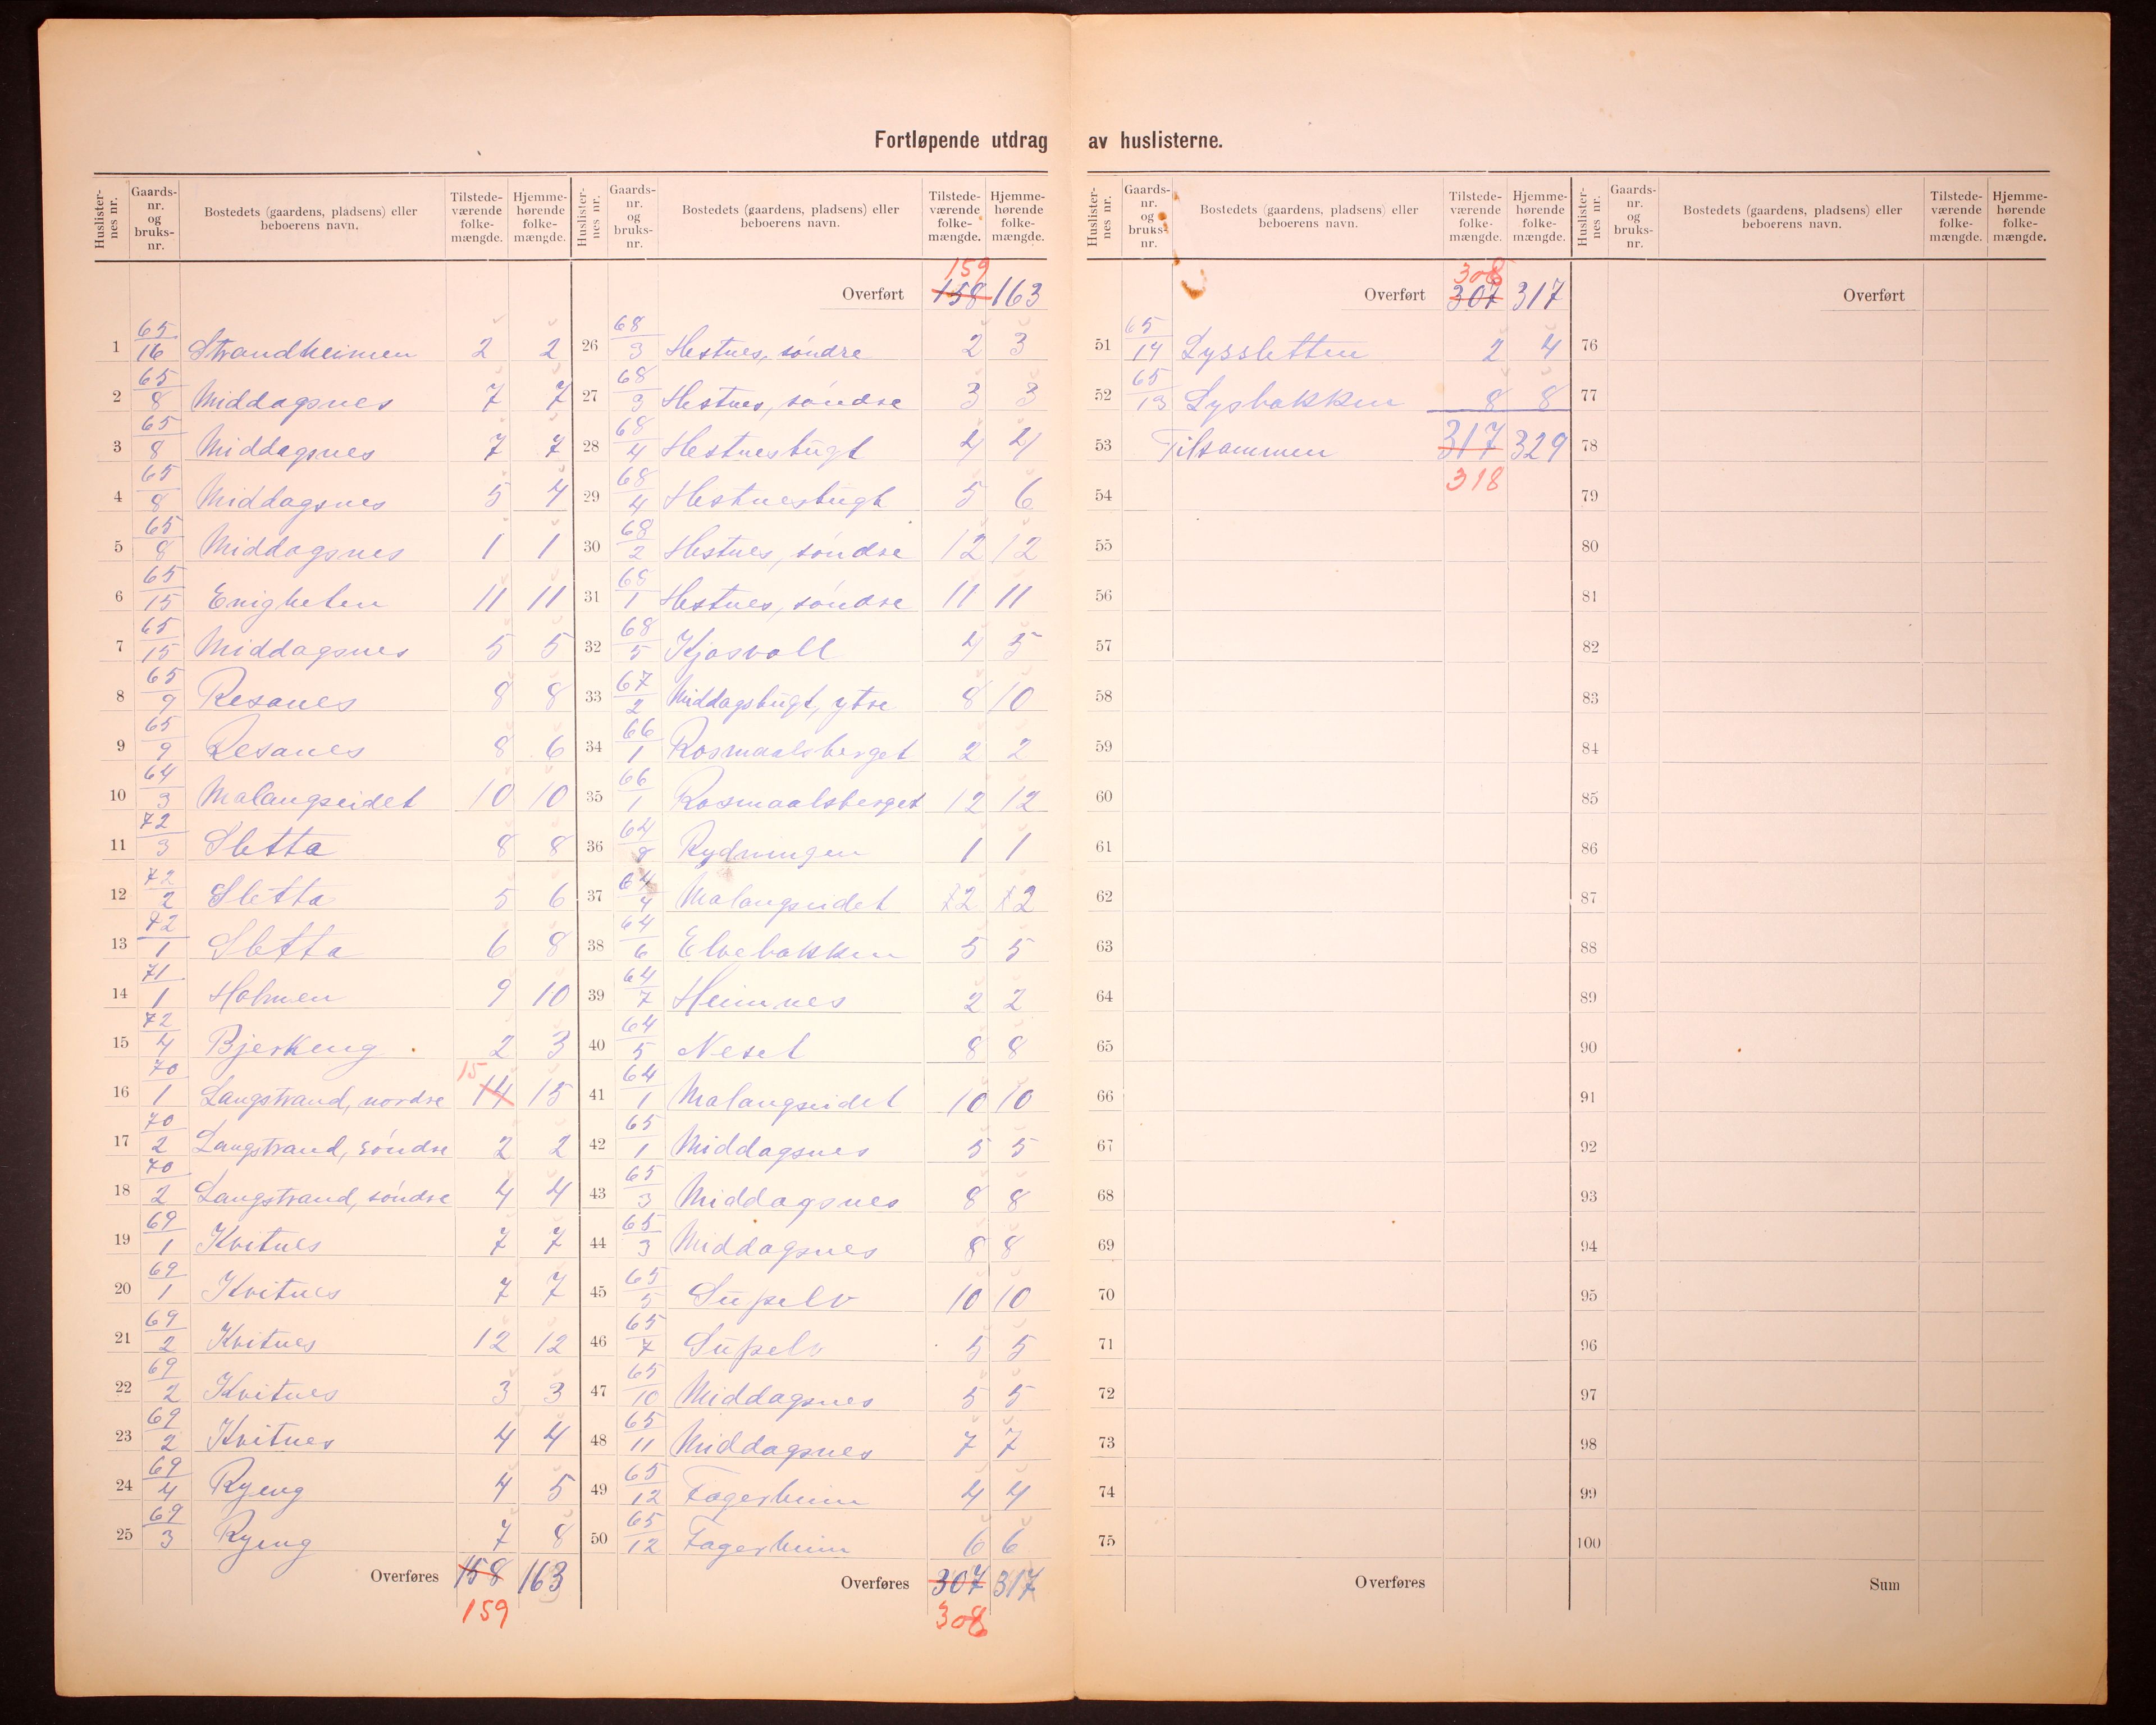 Fortløpende utdrag av huslisterne.
Huslister-nes nr. | Gaards-nr. og bruks-nr. | Bostedets (gaardens, pladsens) eller beboerens navn. | Tilstede-værende folke-mængde. | Hjemme-hørende folke-mængde.
1 65/16 Strandheimen 2 2
2 65/8 Middagsnes 7 7
3 65/8 Middagsnes 7 7
4 65/8 Middagsnes 5 4
5 65/8 Middagsnes 1 1
6 65/15 Enigheten 11 11
7 65/15 Middagsnes 5 5
8 65/9 Resanes 8 8
9 65/9 Resanes 8 6
10 64/3 Malangseidet 10 10
11 72/3 Sletta 8 8
12 72/2 Sletta 5 6
13 72/1 Sletta 6 8
14 71/1 Holmen 9 10
15 72/4 Bjerkeng 2 3
16 70/1 Langstrand, nordre 15 14 15
17 70/2 Langstrand, söndre 2 2
18 70/2 Langstrand, söndre 4 4
19 69/1 Kvitnes 7 7
20 69/1 Kvitnes 7 7
21 69/2 Kvitnes 12 12
22 69/2 Kvitnes 3 3
23 69/2 Kvitnes 4 4
24 69/4 Ryeng 4 5
25 69/3 Ryeng 7 8
Overføres 158 163
159
Huslister-nes nr. | Gaards-nr. og bruks-nr. | Bostedets (gaardens, pladsens) eller beboerens navn. | Tilstede-værende folke-mængde. | Hjemme-hørende folke-mængde.
159
Overført 158 163
26 68/3 Hestnes, söndre 2 3
27 68/3 Hestnes, söndre 3 3
28 68/4 Hestnesbugt 4 4
29 68/4 Hestnesbugt 5 6
30 68/2 Hestnes, söndre 12 12
31 68/1 Hestnes, söndre 11 11
32 68/5 Kjosvoll 4 5
33 67/2 Middagsbugt, ytre 8 10
34 66/1 Rosmaalsberget 2 2
35 66/1 Rosmaalsberget 12 12
36 64/8 Rydningen 1 1
37 64/4 Malangseidet 2 2
38 64/6 Elvebakken 5 5
39 64/7 Heimnes 2 2
40 64/5 Neset 8 8
41 64/1 Malangseidet 10 10
42 65/1 Middagsnes 5 5
43 65/3 Middagsnes 8 8
44 65/3 Middagsnes 8 8
45 65/5 Supelv 10 10
46 65/7 Supelv 5 5
47 65/10 Middagsnes 5 5
48 65/11 Middagsnes 7 7
49 65/12 Fagerheim 4 4
50 65/12 Fagerheim 6 6
Overføres 307 317
308
Huslister-nes nr. | Gaards-nr. og bruks-nr. | Bostedets (gaardens, pladsens) eller beboerens navn. | Tilstede-værende folke-mængde. | Hjemme-hørende folke-mængde.
308
Overført 307 317
51 65/14 Lyssletten 2 4
52 65/13 Lysbakken 8 8
53 Tilsammen 317 329
54 318
55
56
57
58
59
60
61
62
63
64
65
66
67
68
69
70
71
72
73
74
75
Overføres
Huslister-nes nr. | Gaards-nr. og bruks-nr. | Bostedets (gaardens, pladsens) eller beboerens navn. | Tilstede-værende folke-mængde. | Hjemme-hørende folke-mængde.
Overført
76
77
78
79
80
81
82
83
84
85
86
87
88
89
90
91
92
93
94
95
96
97
98
99
100
Sum